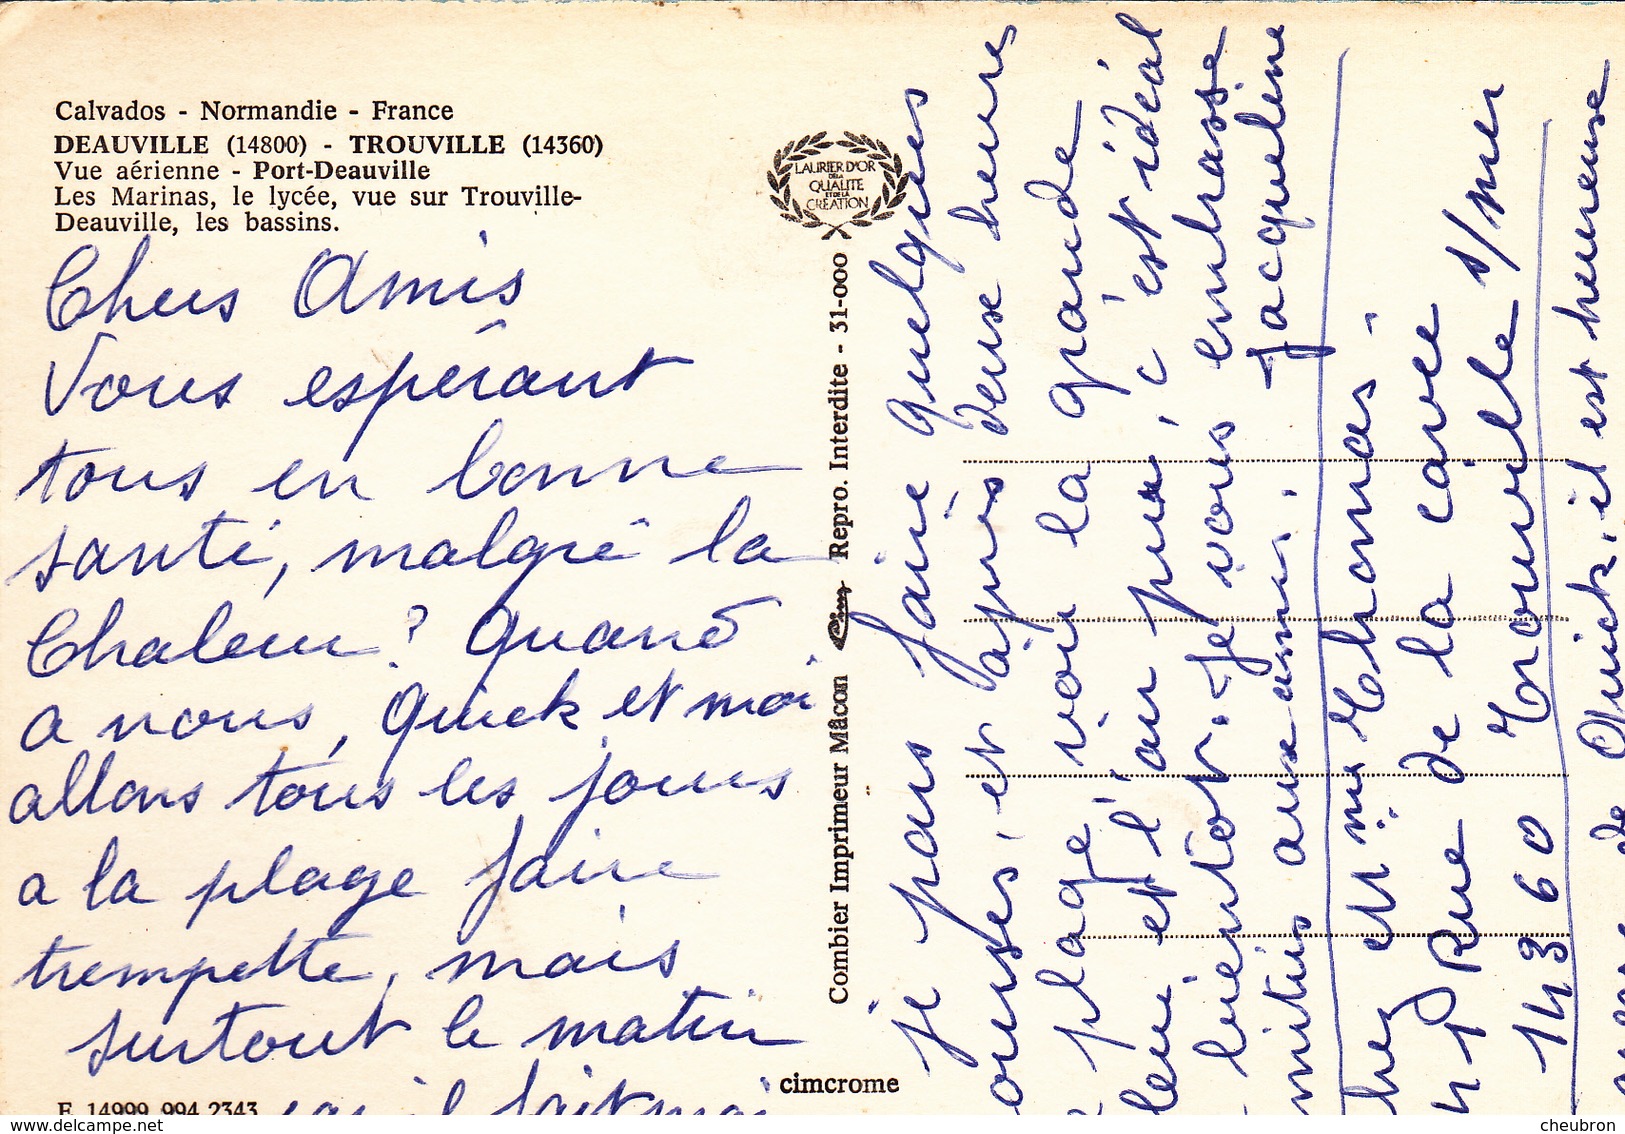 Calvados - Normandie - France
DEAUVILLE (14800) - TROUVILLE (14360)
Vue aérienne - Port-Deauville
Les Marinas, le lycée, vue sur Trouville-
Deauville, les bassins.
LAURIER D'OR
DE LA
QUALITE
ET DE LA
CRÉATION
Chers Amis
Vous espérant
tous en bonne
santé, malgré la
Chaleur? Quand
a nous, Quick et moi
allons tous les jours
a la plage faire
trempette, mais
surtout le matin
car il fait moi
E 14999 994 2343
Combier Imprimeur Mâcon Cim Repro. Interdite - 31-000
cimcrome
je pars faire quelques
ourses, et après deux heures
plage, voir la grande
leue et l'air pur, c'est idéal
bientôt. Je vous embrasse
mitiés aux amis. Jacqueline
hez et Mme Thomas.
4 P Rue de la cavée
14360 Trouville s/mer
de Quick, il est heureuse
delcampe.net
cheubron